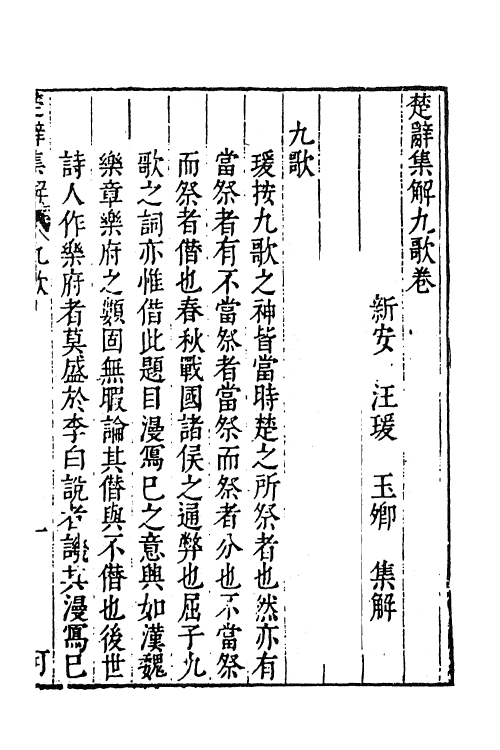 楚辭集解九歌卷
新安 汪瑗 玉卿 集解
九歌
瑗按九歌之神皆當時楚之所祭者也然亦有
當祭者有不當祭者當祭而祭者分也不當祭
而祭者僭也春秋戰國諸侯之通弊也屈子九
歌之詞亦惟借此題目漫寫已之意興如漢魏
樂章樂府之類固無暇論其僭與不僭也後世
詩人作樂府者莫盛於李白說者譏其漫寫已
楚辭集解 九歌 一